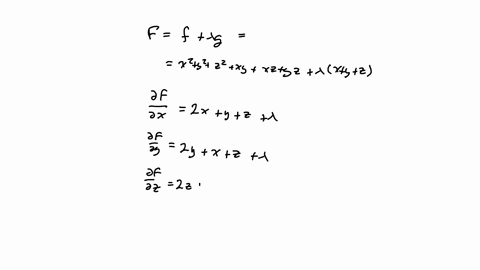 F = f + λg =
= x²+y²+z²+xy+xz+yz+λ(x+y+z)
∂F/∂x = 2x+y+z+λ
∂F/∂y = 2y+x+z+λ
∂F/∂z = 2z